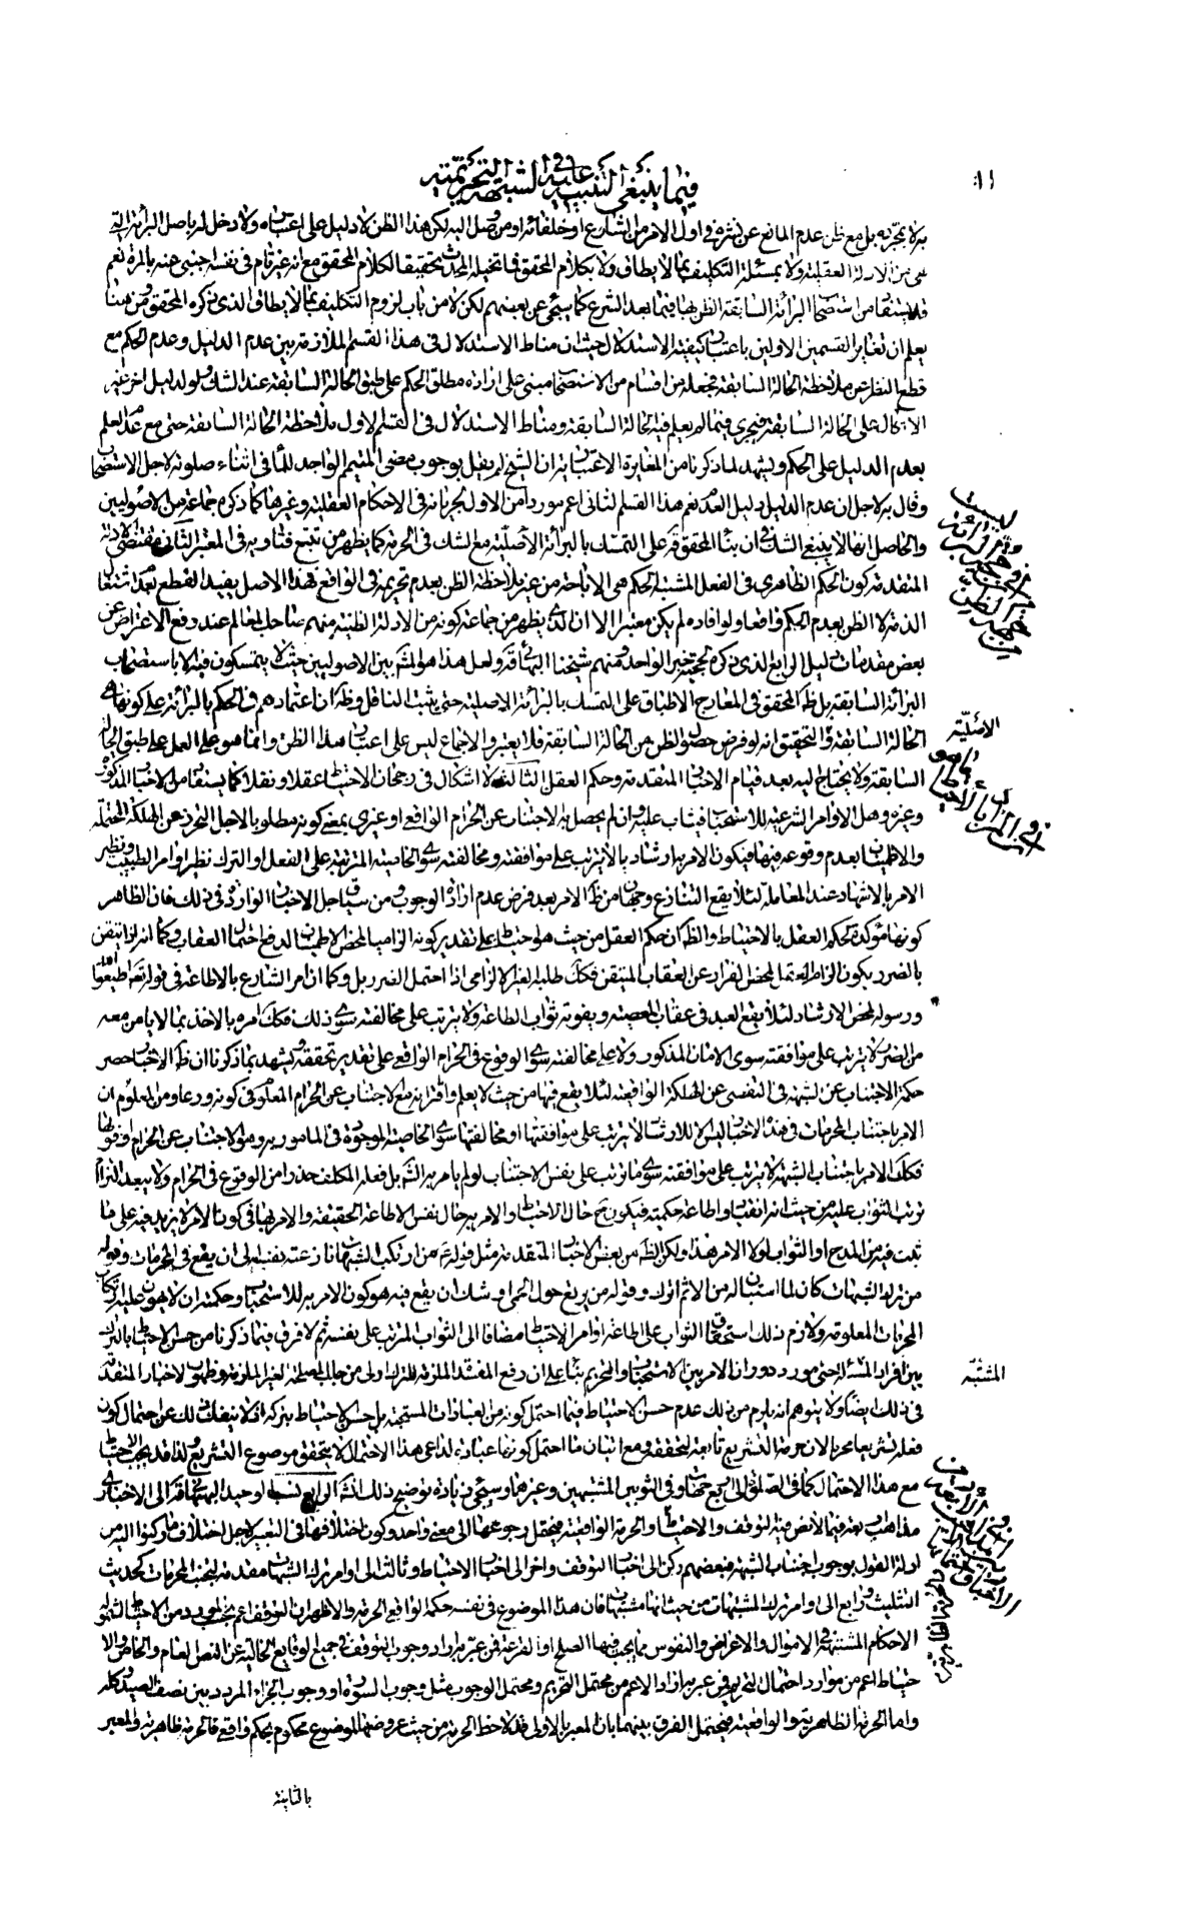 فيما ينبغي التنبيه عليه في الشبهة التحريمية
به لا بمجرده بل مع ظن عدم المانع عن نشره في اول الامر من الشارع او خلفائه او من وصل اليه لكن هذا الظن لا دليل على اعتباره ولا دخل له باصل البرائة التي
هي من الادلة العقلية ولا بمسئلة التكليف بما لا يطاق ولا بكلام المحقق فما تخيله المحدث تحقيقا لكلام المحقق مع انه غير تام في نفسه اجنبي عنه بالمرة نعم
قد يستفاد من استصحاب البرائة السابقة الظن بها فيما بعد الشرع كما سيجئ عن بعضهم لكن لا من باب لزوم التكليف بما لا يطاق الذي ذكره المحقق ومن هنا
يعلم ان تغاير القسمين الاولين باعتبار كيفية الاستدلال حيث ان مناط الاستدلال في هذا القسم الملازمة بين عدم الدليل وعدم الحكم مع
قطع النظر عن ملاحظة الحالة السابقة فجعله من اقسام الاستصحاب مبني على ارادة مطلق الحكم على طبق الحالة السابقة عند الشك ولو لدليل اخر غير
الاتكال على الحالة السابقة فيجري فيما لم يعلم فيه الحالة السابقة ومناط الاستدلال في القسم الاول ملاحظة الحالة السابقة حتى مع عدم العلم
بعدم الدليل على الحكم ويشهد لما ذكرنا من المغايرة الاعتبارية ان الشيخ لم يقل بوجوب مضي المتيمم الواجد للماء في اثناء صلوته لاجل الاستصحاب
وقال به لاجل ان عدم الدليل دليل العدم نعم هذا القسم الثاني اعم موردا من الاول لجريانه في الاحكام العقلية وغيرها كما ذكره جماعة من الاصوليين
والحاصل انه لا ينبغي الشك في ان بناء المحقق قده على التمسك بالبرائة الاصلية مع الشك في الحرمة كما يظهر من تتبع فتاويه في المعتبر الثاني مقتضى الادلة
المتقدمة كون الحكم الظاهري في الفعل المشتبه الحكم هي الاباحة من غير ملاحظة الظن بعدم تحريمه في الواقع فهذا الاصل يفيد القطع بعدم اشتغال
الذمة لا الظن بعدم الحكم واقعا ولو افاده لم يكن معتبرا الا ان الذي يظهر من جماعة كونه من الادلة الظنية منهم صاحب المعالم عند دفع الاعتراض عن
بعض مقدمات الدليل الرابع الذي ذكره لحجية خبر الواحد ومنهم شيخنا البهائي قده ولعل هذا هو المش بين الاصوليين حيث لا يتمسكون فيه الا باستصحاب
البرائة السابقة بل ظاهر المحقق في المعارج الاطباق على التمسك بالبرائة الاصلية حتى يثبت الناقل وظاهره ان اعتمادهم في الحكم بالبرائة على كونها هي
الحالة السابقة والتحقيق انه لو فرض حصول الظن من الحالة السابقة فلا يعتبر والاجماع ليس على اعتبار هذا الظن وانما هو على العمل على طبق الحالة
السابقة ولا يحتاج اليه بعد قيام الاخبار المتقدمة وحكم العقل الثالث لا اشكال في رجحان الاحتياط عقلا ونقلا كما يستفاد من الاخبار المذكورة
وغيرها وهل الاوامر الشرعية للاستحباب فيثاب عليه وان لم يحصل به الاجتناب عن الحرام الواقعي او غيري بمعنى كونه مطلوبا لاجل التحرز عن الهلكة المحتملة
والاطمينان بعدم وقوعه فيها فيكون الامر به ارشاديا لا يترتب على موافقته ومخالفته سوى الخاصية المترتبة على الفعل او الترك نظير اوامر الطبيب ونظير
الامر بالاشهاد عند المعاملة لئلا يقع التنازع وجهان من ظاهر الامر بعد فرض عدم ارادة الوجوب ومن سياق جل الاخبار الواردة في ذلك فان الظاهر
كونها مؤكدة لحكم العقل بالاحتياط والظاهر ان حكم العقل من حيث هو احتياط على تقدير كونه الزاميا لمحض الاطمينان لدفع احتمال العقاب وكما انه اذا تيقن
بالضرر يكون الزام العقل لمحض الفرار عن العقاب المتيقن فكك طلبه الغير الالزامي اذا احتمل الضرر بل وكما ان امر الشارع بالاطاعة في قوله تعالى اطيعوا الله
ورسوله لمحض الارشاد لئلا يقع العبد في عقاب المعصية ويفوته ثواب الطاعة ولا يترتب على مخالفته سوى ذلك فكك امره بالاخذ بما لا يامن معه
من الضرر لا يترتب على موافقته سوى الامان المذكور ولا على مخالفته سوى الوقوع في الحرام الواقعي على تقدير تحققه ويشهد بما ذكرنا ان ظاهر الاخبار حصر
حكمة الاجتناب عن الشبهة في التفصي عن الهلكة الواقعية لئلا يقع فيها من حيث لا يعلم واقترانه مع الاجتناب عن الحرام المعلوم في كونه ورعا ومن المعلوم ان
الامر باجتناب المحرمات في هذه الاخبار ليس الا للارشاد لا يترتب على موافقتها ومخالفتها سوى الخاصية الموجودة في المامور به وهو الاجتناب عن الحرام او فوتها
فكك الامر باجتناب الشبهة لا يترتب على موافقته سوى ما يترتب على نفس الاجتناب لو لم يامر به الشارع بل فعله المكلف حذرا من الوقوع في الحرام ولا يبعد التزام
ترتب الثواب عليه من حيث انه انقياد واطاعة حكمية فيكون ح حال الاحتياط والامر به حال نفس الاطاعة الحقيقية والامر بها في كون الامر لا يزيد فيه على ما
ثبت فيه من المدح او الثواب لولا الامر هذا ولكن الظاهر من بعض الاخبار المتقدمة مثل قوله ع من ارتكب الشبهات نازعته نفسه الى ان يقع في المحرمات وقوله
من ترك الشبهات كان لما استبان له من الاثم اترك وقوله من يرتع حول الحمى اوشك ان يقع فيه هو كون الامر به للاستحباب وحكمته ان لا يهون عليه ارتكاب
المحرمات المعلومة ولازم ذلك استحقاق الثواب على اطاعة اوامر الاحتياط مضافا الى الثواب المترتب على نفسه ثم لا فرق فيما ذكرنا من حسن الاحتياط بالترك
بين افراد المسئلة حتى مورد دوران الامر بين الاستحباب والتحريم بناء على ان دفع المفسدة الملزمة للترك اولى من جلب المصلحة الغير الملزمة وظهور الاخبار المتقدمة
في ذلك ايضا ولا يتوهم انه يلزم من ذلك عدم حسن الاحتياط فيما احتمل كونه من العبادات المستحبة بل حسن الاحتياط بتركه اذ لا ينفك ذلك عن احتمال كون
فعله تشريعا محرما لان حرمة التشريع تابعة لتحققه ومع اتيان ما احتمل كونها عبادة لداعي هذا الاحتمال لا يتحقق موضوع التشريع ولذا قد يجب الاحتياط
مع هذا الاحتمال كما في الصلوة الى اربع جهات او في الثوبين المشتبهين وغيرهما وسيجئ زيادة توضيح لذلك انشاء الله الرابع نسب الوحيد البهبهاني قده الى الاخباريين
مذاهب اربعة فيما لا نص فيه التوقف والاحتياط والحرمة الظاهرية والحرمة الواقعية فيحتمل رجوعها الى معنى واحد وكون اختلافها في التعبير لاجل اختلاف ما ركنوا اليه من
ادلة القول بوجوب اجتناب الشبهة فبعضهم ركن الى اخبار التوقف واخر الى اخبار الاحتياط وثالث الى اوامر ترك الشبهات مقدمة لتجنب المحرمات كحديث
التثليث ورابع الى اوامر ترك المشتبهات من حيث انها مشتبهات فان هذا الموضوع في نفسه حكمه الواقعي الحرمة والاظهر ان التوقف اعم بحسب المورد من الاحتياط لشموله
الاحكام المشتبهة في الاموال والاعراض والنفوس مما يجب فيها الصلح او القرعة فمن عبر به اراد وجوب التوقف في جميع الوقايع الخالية عن النص العام والخاص والا
حتياط اعم من موارد احتمال التحريم فمن عبر به اراد الاعم من محتمل التحريم ومحتمل الوجوب مثل وجوب السورة او وجوب الجزاء المردد بين نصف الصيد وكله
واما الحرمة الظاهرية والواقعية فيحتمل الفرق بينهما بان المعبر بالاولى قد لاحظ الحرمة من حيث عروضها لموضوع محكوم بحكم واقعي فالحرمة ظاهرية والمعبر
الاصلية
المشتبه
بالثانية